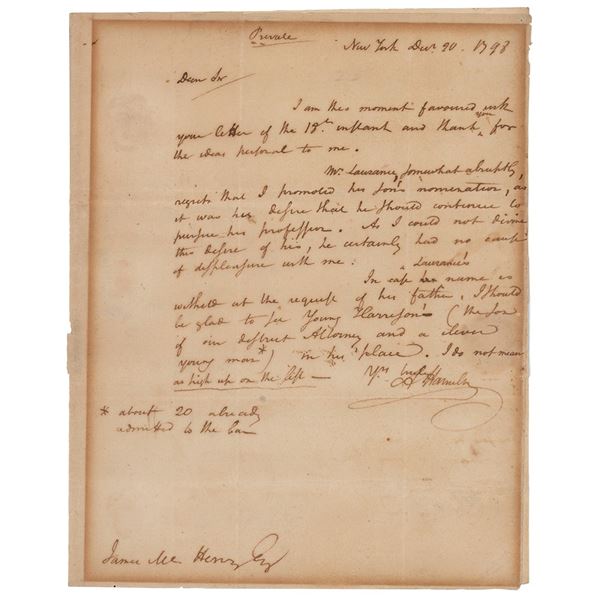 Private
New York Decr 20. 1798
Dear Sir
I am this moment favoured with
your letter of the 18th instant and thank you for
the ideas personal to me.
Mr. Laurance, somewhat abruptly,
regrets that I promoted his Son's nomination, as
it was his desire that he should continue to
pursue his profession. As I could not divine
this desire of his, he certainly had no cause
of displeasure with me.
In case Laurance's name is
withheld at the request of his father, I should
be glad to see Young Harrison's (the Son
of our district Attorney and a clever
young man*) in his place. I do not mean
as high up on the list —
Yrs truly
A Hamilton
* about 20 already
admitted to the bar
James Mc Henry Esq